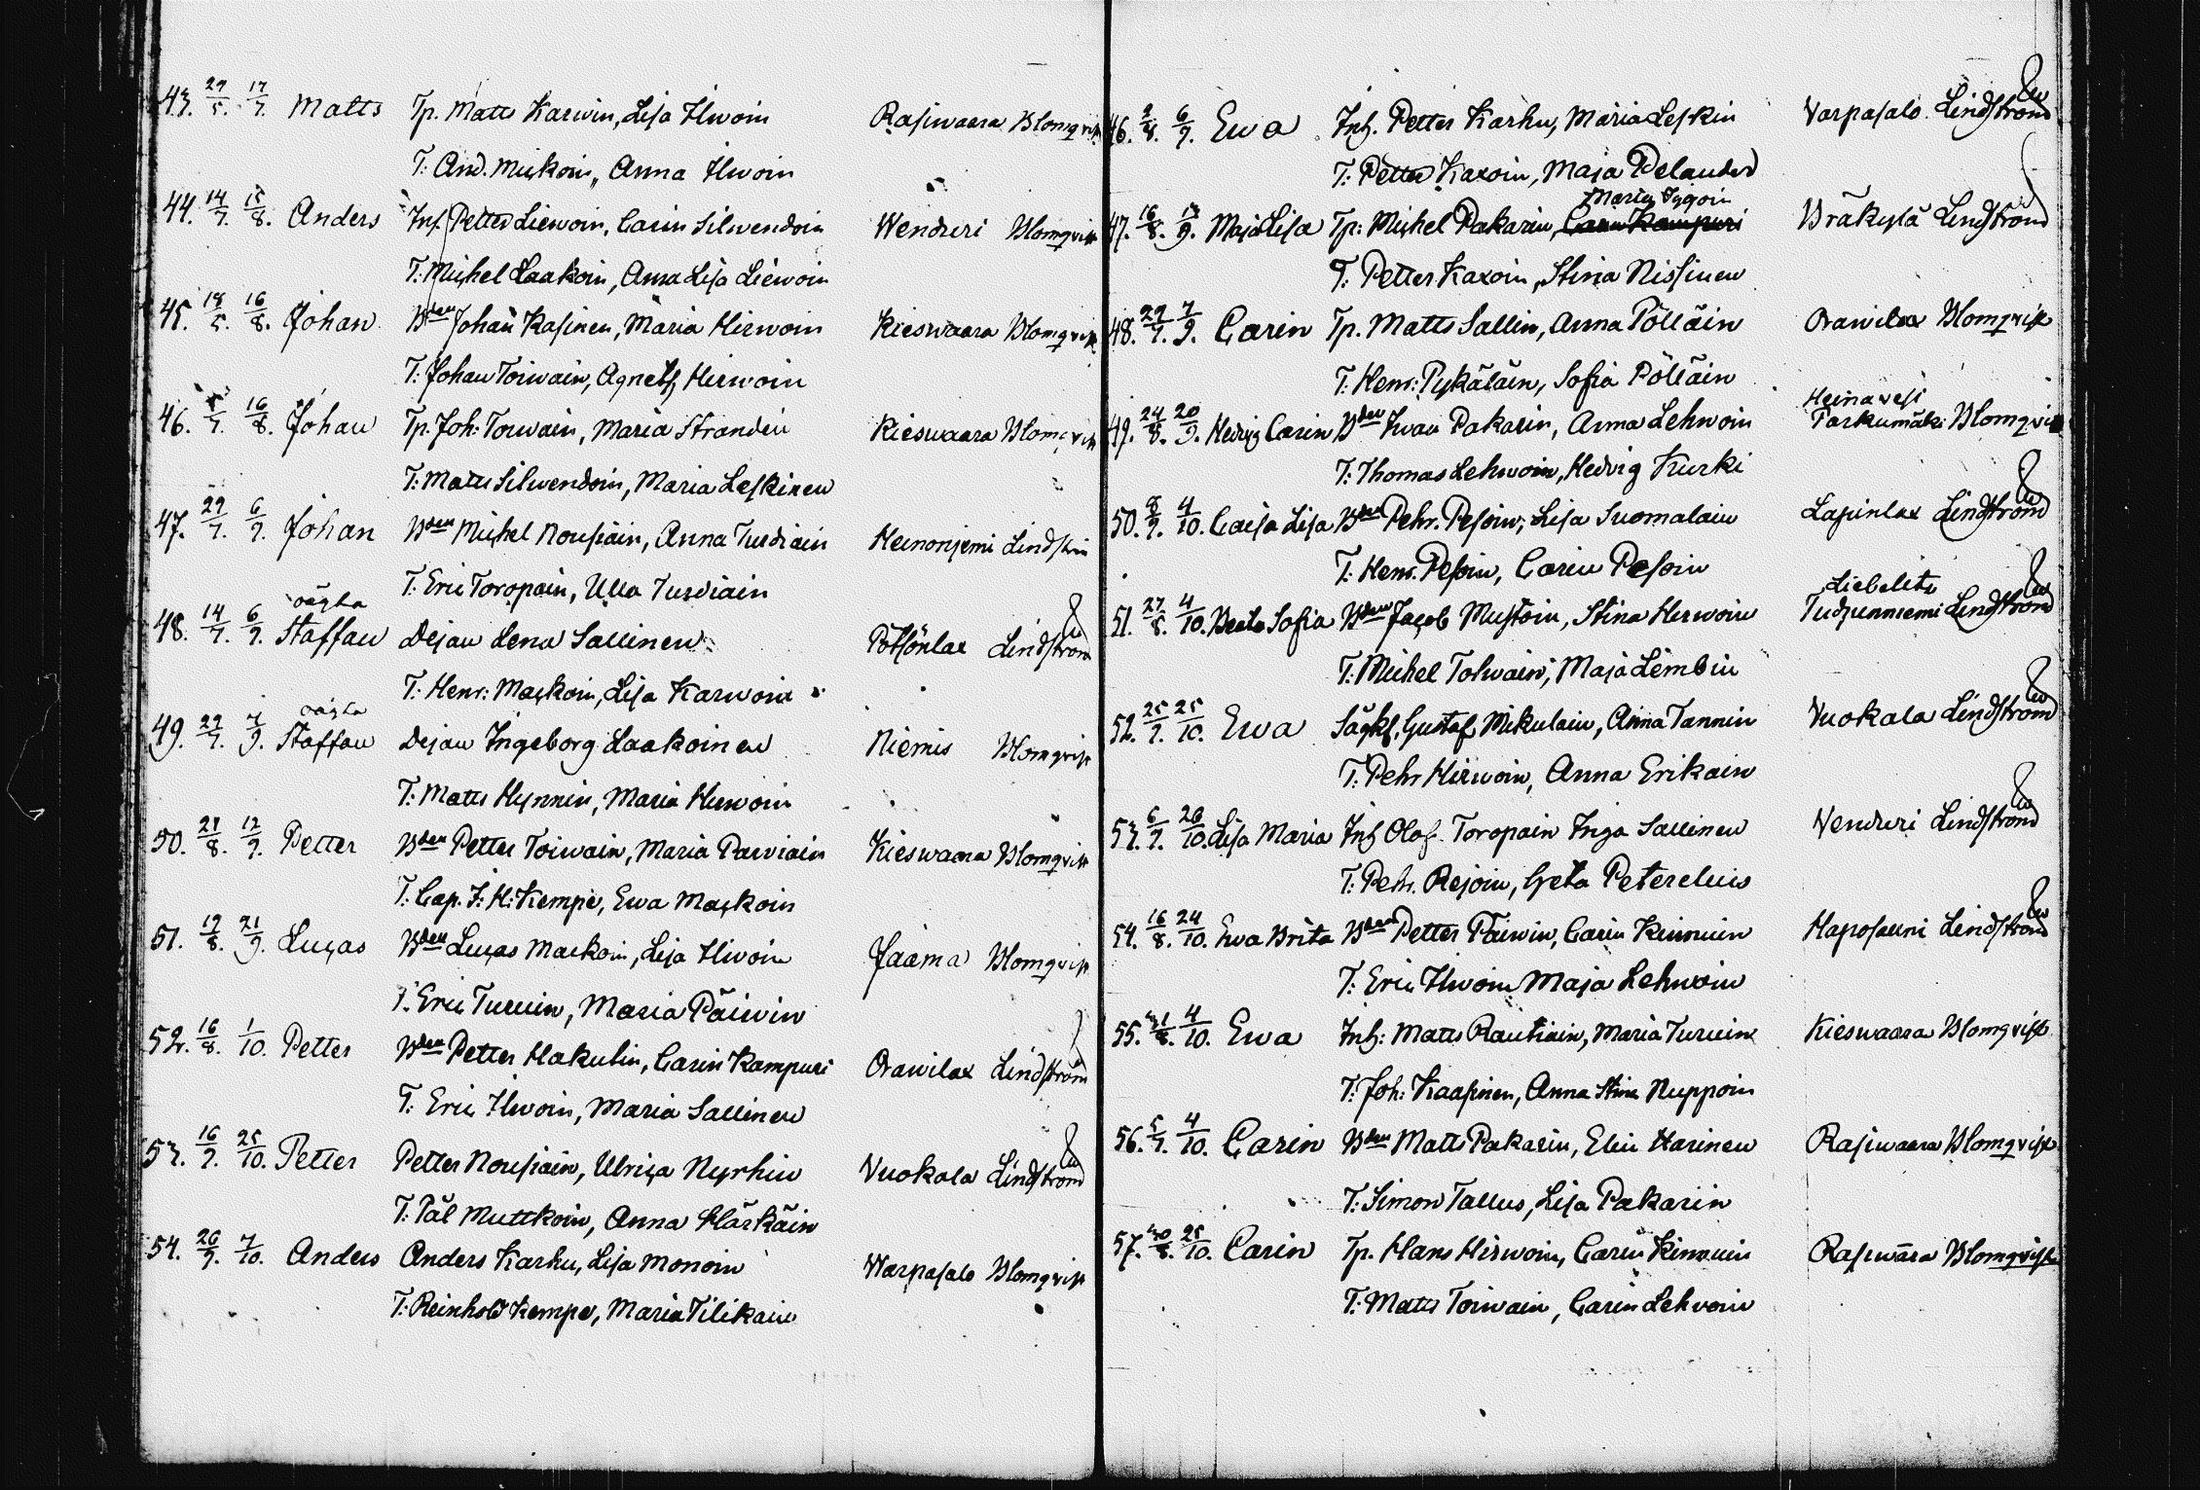 43. 27/5. 17/7. Matts Tp. Matts Karwin, Lisa Ihwoin Rasiwaara Blomqvist
T: And. Muskoin, Anna Ihwoin
44. 14/7. 15/8. Anders Inh. Petter Liewoin, Carin Silwendoin Wenduri Blomqvist
T: Michel Laakoin, Anna Lisa Liewoin
45. 18/5. 16/8. Johan Bden Johan Kasinen, Maria Hirwoin Kieswaara Blomqvist
T: Johan Toiwain, Agneth Hirwoin
46. 16/8. Johan Tp. Joh: Toiwain, Maria Strandin Kieswaara Blomqvist
T: Matts Silwendoin, Maria Leskinen
47. 29/7. 6/9. Johan Bden Michel Nousiain, Anna Turdiain Heinonjemi Lindström
T. Eric Toropain, Ulla Turdiain
oägta
48. 14/7. 6/9. Staffan Dejan Lena Sallinen Pötsönlax Lindström
T: Henr: Maskoin, Lisa Karwoin
oägta
49. 29/7. 7/9. Staffan Dejan Ingeborg Laakoinen Niemis Blomqvist
T: Matts Hynnin, Maria Hirwoin
50. 21/8. 12/9. Petter Bden Petter Toiwain, Maria Parviain Kieswaara Blomqvist
T: Cap. J: H: Kempe, Ewa Maskoin
51. 19/8. 21/9. Lucas Bden Lucas Mackoin, Lisa Ihwoin Jaama Blomqvist
T: Eric Turuin, Maria Päiwin
52. 16/8. 1/10. Petter Bden Petter Hakulin, Carin Kampuri Orawilax Lindström
T: Eric Ihwoin, Maria Sallinen
53. 16/9. 25/10. Petter Petter Nousiain, Ulrica Nyrhin Vuokala Lindström
T: Pål Muttkoin, Anna Härkäin
54. 26/9. 7/10. Anders Anders Karhu, Lisa Monoin Warpasalo Blomqvist
T: Reinhold Kempe, Maria Tilikain
46. 2/8. 6/9. Ewa Inh. Petter Karhu, Maria Leskin Varpasalo Lindström
T: Petter Kaxoin, Maja Pelander
Maria Tygoin
47. 16/8. 13/9. Maja Lisa Tp: Michel Pakarin, Carin Kampuri Bräkylä Lindström
T: Petter Kaxoin, Stina Nissinen
48. 29/7. 7/9. Carin Tp. Matts Sallin, Anna Pölläin Orawilax Blomqvist
T: Henr: Pykäläin, Sofia Pölläin
Heinavesi
49. 24/8. 20/9. Hedvig Carin Bden Iwan Pakarin, Anna Lehwoin Parkumäki Blomqvist
T: Thomas Lehwoin, Hedvig Kurki
50. 8/9. 4/10. Caisa Lisa Bden Pehr. Pesoin, Lisa Suomalain Lapinlax Lindström
T: Henr. Pesoin, Carin Pesoin
Liebelits
51. 27/8. 4/10. Beata Sofia Bden Jacob Mustoin, Stina Herwoin Tudunniemi Lindström
T: Michel Tolwain, Maja Lembin
52. 25/9. 25/10. Ewa Sågkf. Gustaf Mikulain, Anna Tannin Vuokala Lindström
T: Pehr Hirwoin, Anna Erikain
53. 6/9. 26/10. Lisa Maria Inh Olof Toropain Inga Sallinen Venduri Lindström
T: Pehr. Rejoin, Greta Petercluis
54. 16/8. 24/10. Ewa Brita Bden Petter Päiwin, Carin Kinnuin Haposauni Lindström
T: Eric Ihwoin Maja Lehwoin
55. 31/8. 4/10. Ewa Inh: Matts Rautiain, Maria Turuin Kieswaara Blomqvist
T: Joh: Kaasinen, Anna Stina Nuppoin
56. 5/9. 4/10. Carin Bden Matts Pakarin, Elin Harinen Rasiwaara Blomqvist
T: Simon Tallus, Lisa Pakarin
57. 30/8. 25/10. Carin Tp. Hans Hirwoin, Carin Kinnuin Rasiwaara Blomqvist
T: Matts Toiwain, Carin Lehvoin